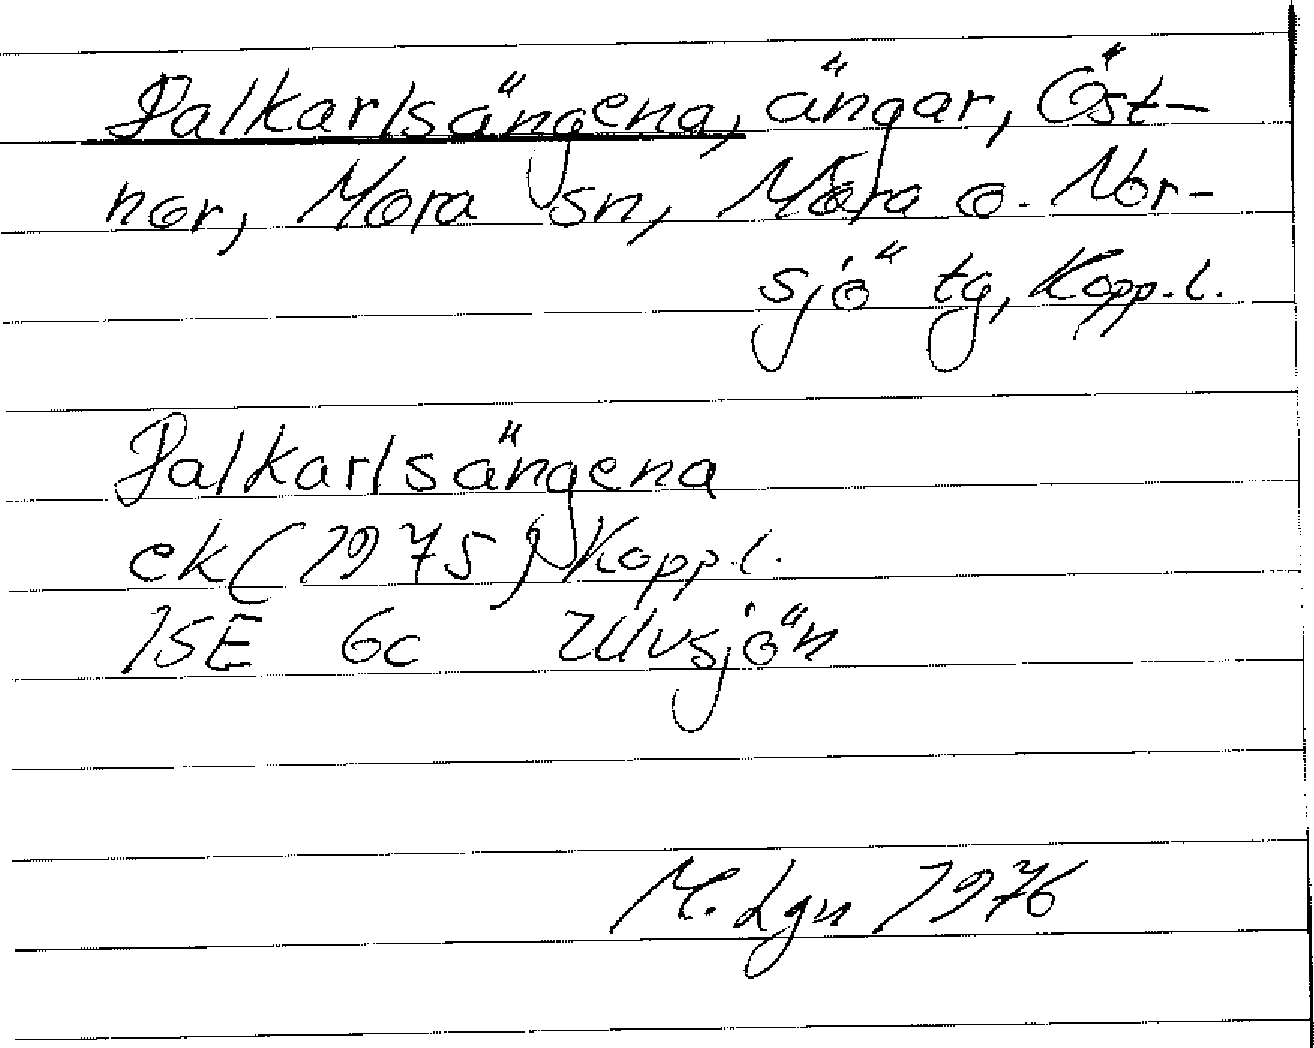 Dalkarlsängena, ängar, Öst-
nor, Mora sn, Mora o. Vor-
sjö tg, Kopp.l.
Dalkarlsängena
ek (1975) Kopp.l.
15E 6c Ulvsjön
M. Lgn 1976